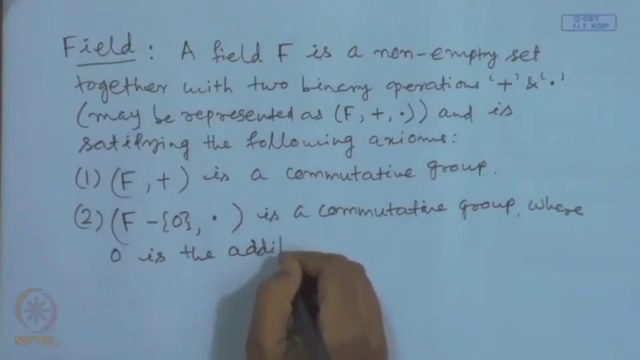 © CET
I.I.T. KGP
Field : A field F is a non-empty set
together with two binary operations '+' & '.'
(may be represented as (F, +, .)) and is
satisfying the following axioms:
(1) (F, +) is a commutative group.
(2) (F - {0}, .) is a commutative group, where
0 is the addi
NPTEL